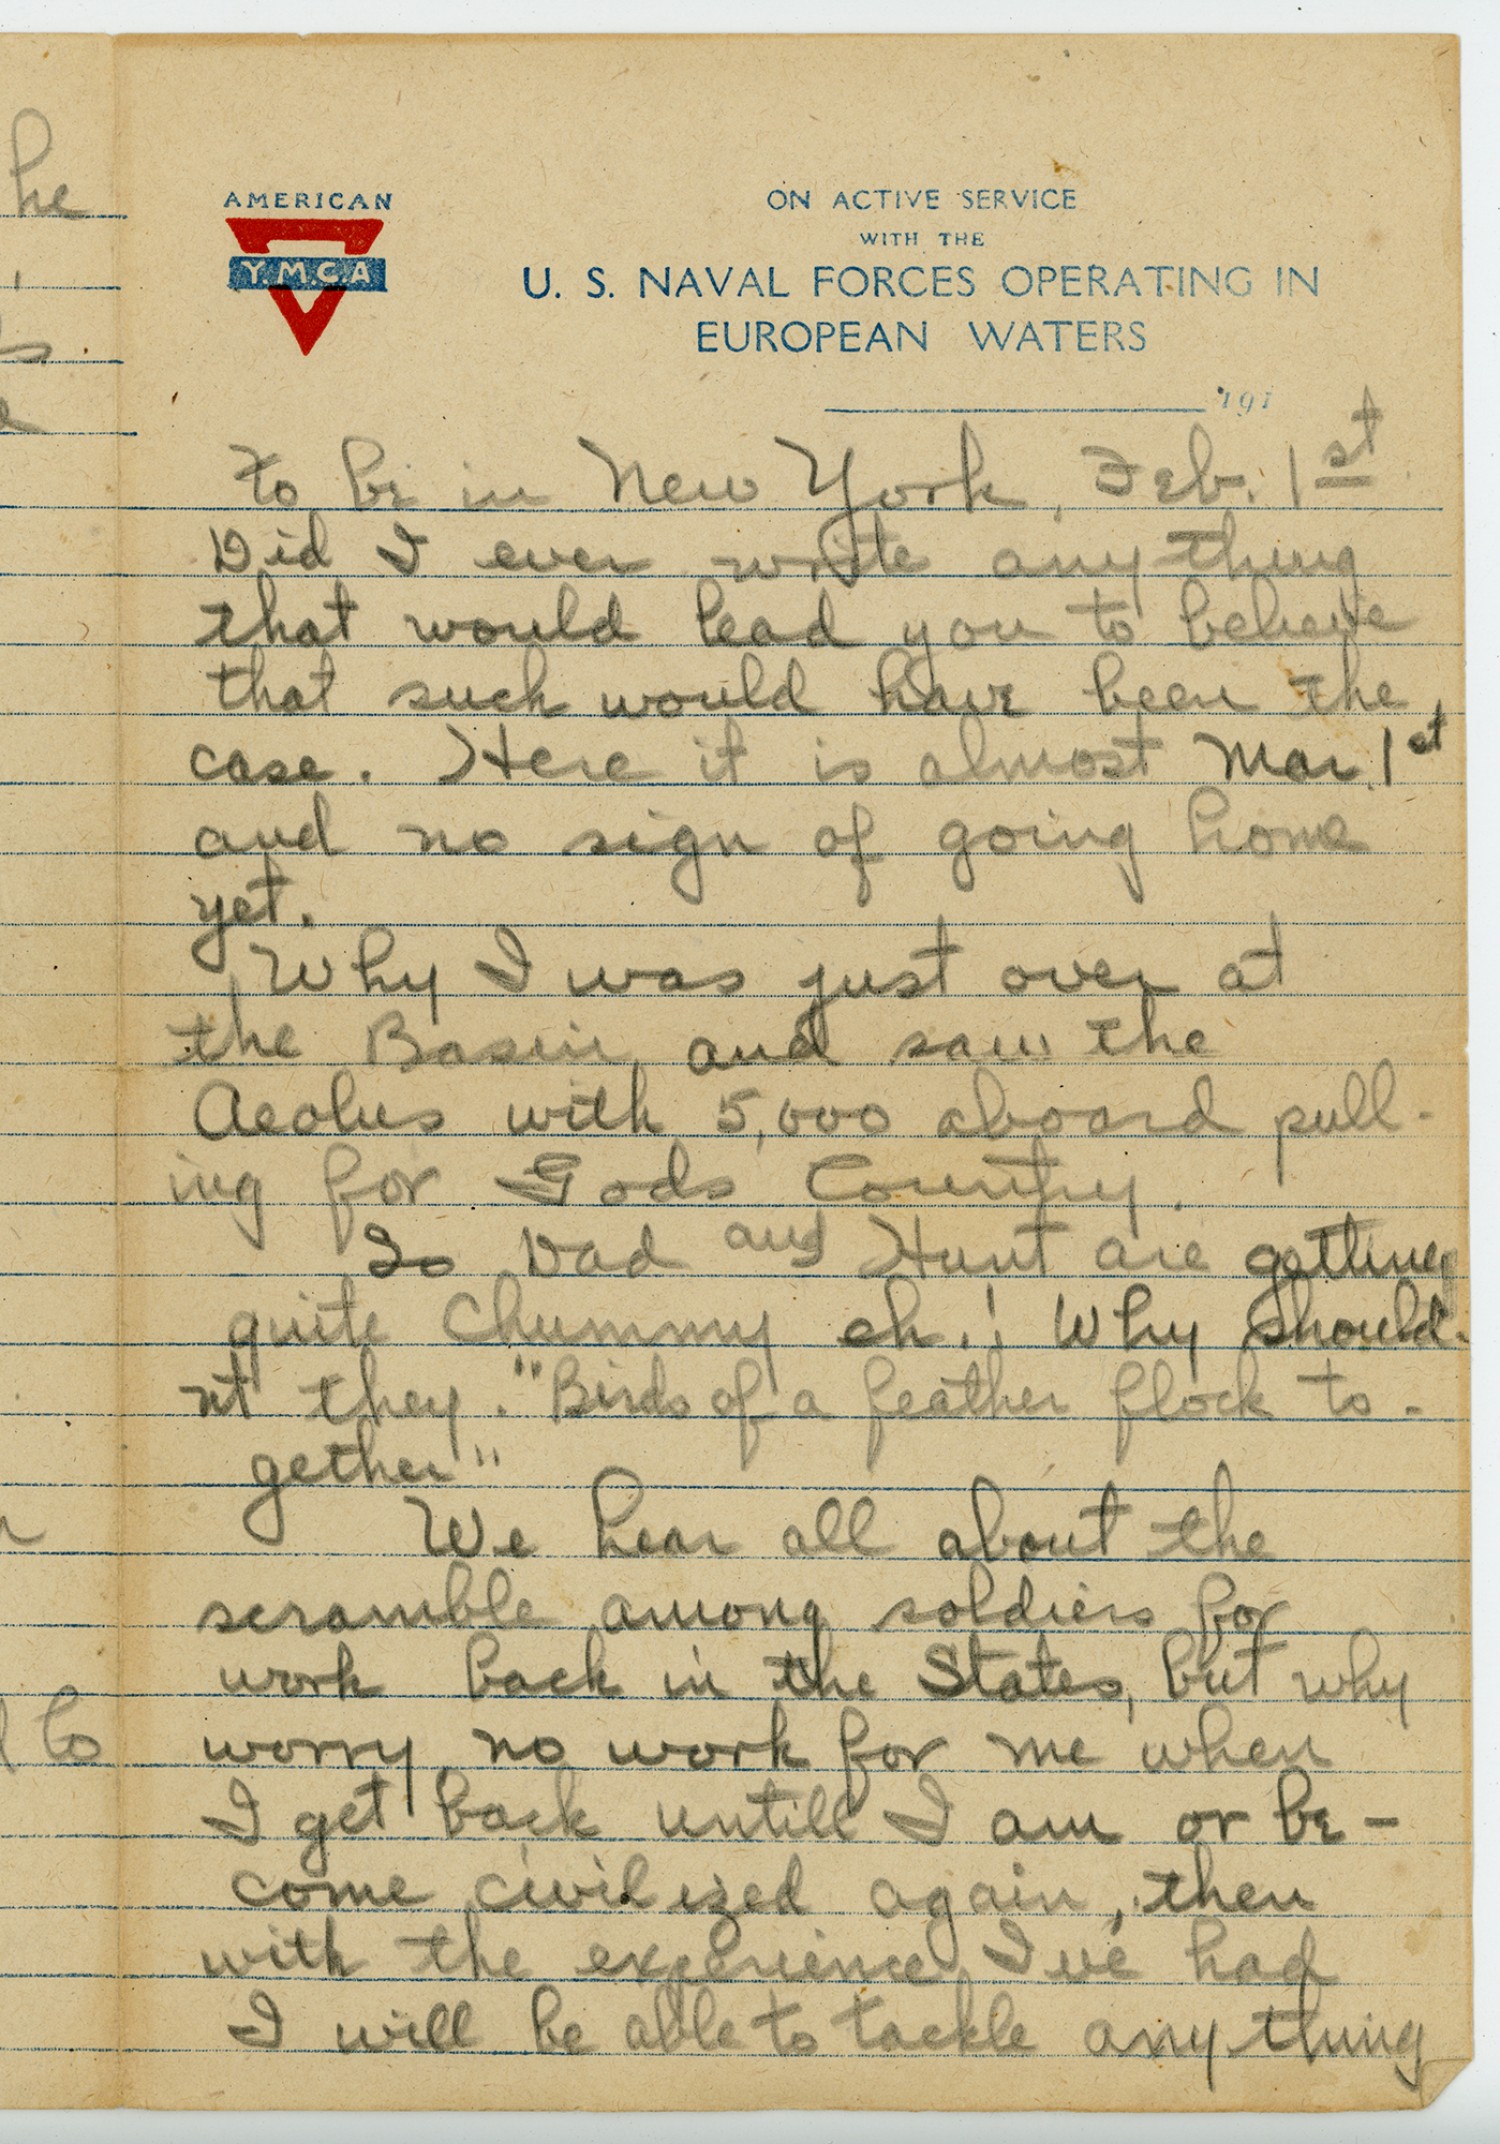 AMERICAN
Y.M.C.A
ON ACTIVE SERVICE
WITH THE
U. S. NAVAL FORCES OPERATING IN
EUROPEAN WATERS
191
to be in New York, Feb. 1st
Did I ever write any thing
that would lead you to believe
that such would have been the
case. Here it is almost Mar. 1st
and no sign of going home
yet.
Why I was just over at
the Basin and saw the
Aeolus with 5,000 aboard pull-
ing for Gods Country.
So Dad and Hunt are getting
quite chummy eh.! Why should-
nt they. "Birds of a feather flock to-
gether"
We hear all about the
scramble among soldiers for
work back in the States, but why
worry no work for me when
I get back untill I am or be-
come civilized again, then
with the experience I've had
I will be able to tackle any thing
he
to